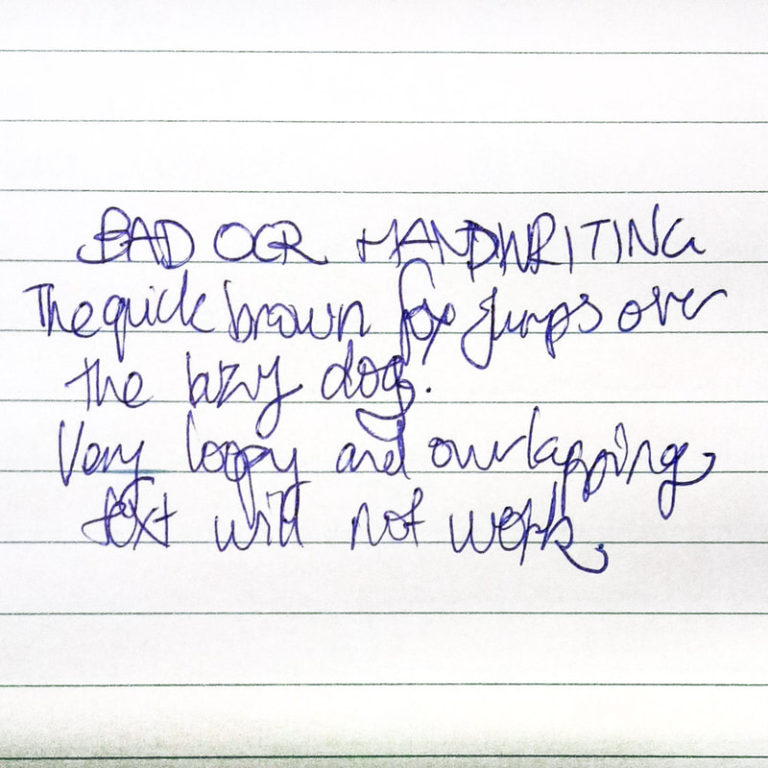 BAD OCR HANDWRITING
The quick brown fox jumps over
the lazy dog.
Very loopy and overlapping
text will not work.